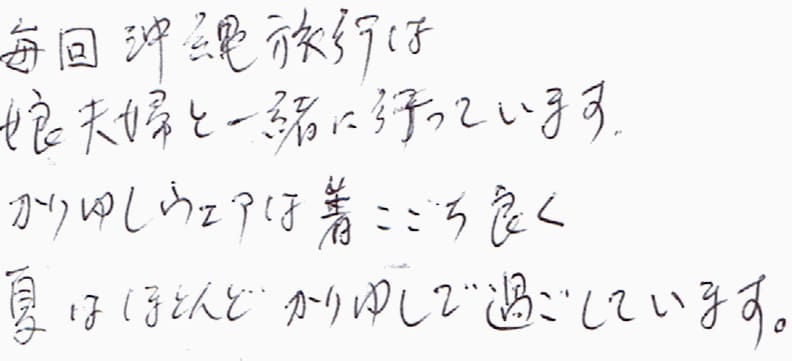 毎回沖縄旅行は
娘夫婦と一緒に行っています.
かりゆしウェアは着ここち良く
夏はほとんどかりゆしで過ごしています。